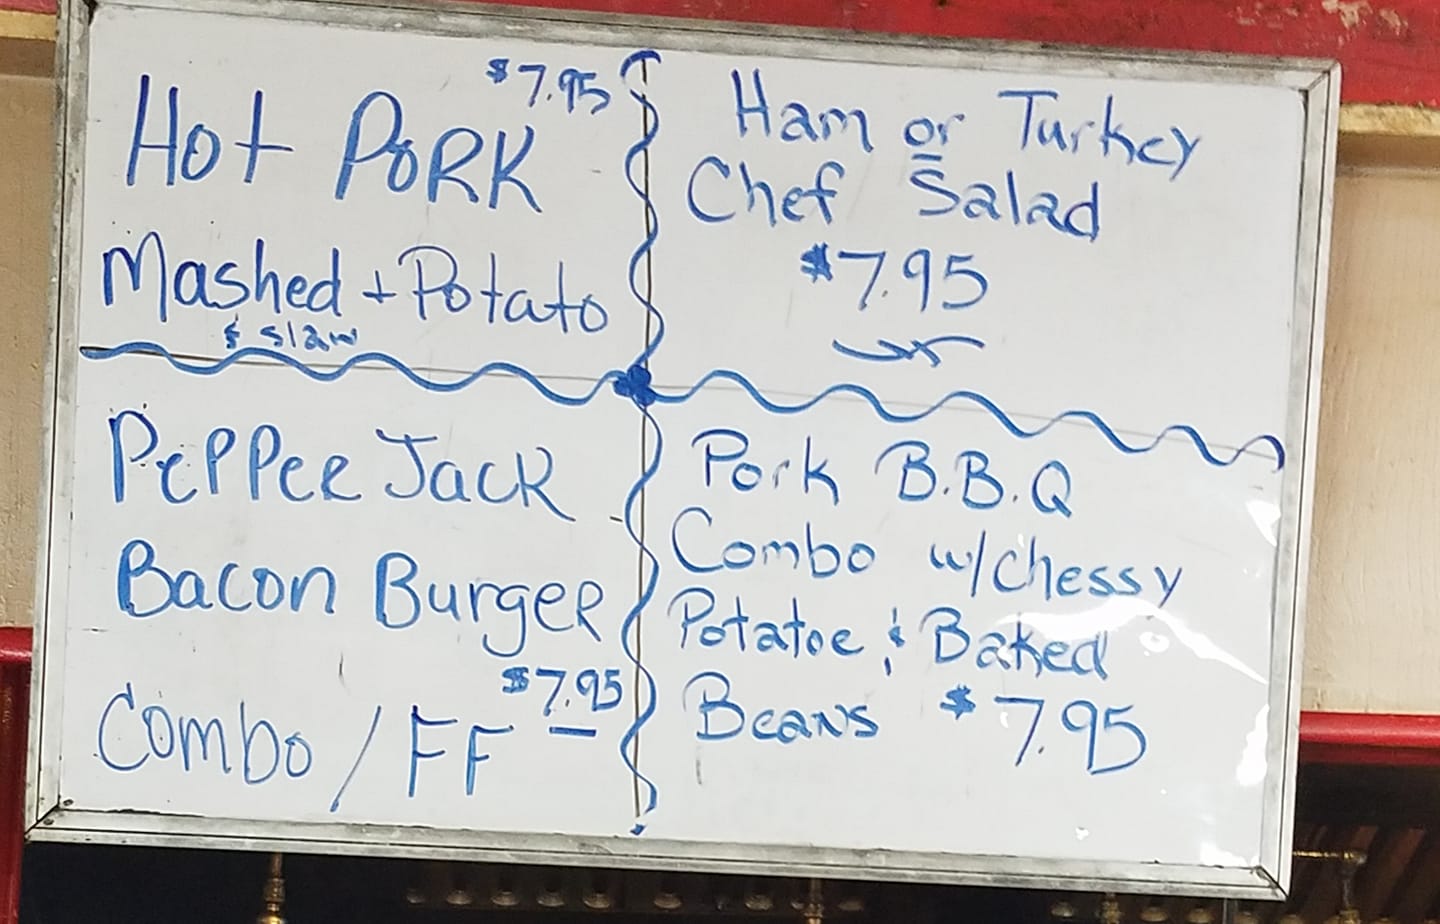 $7.95
Hot PORK
Mashed + Potato
& slaw
Ham or Turkey
Chef Salad
$7.95
PePPeR Jack
Bacon BurgeR
$7.95
Combo / FF
Pork B.B.Q
Combo w/chessy
Potatoe & Baked
Beans $7.95